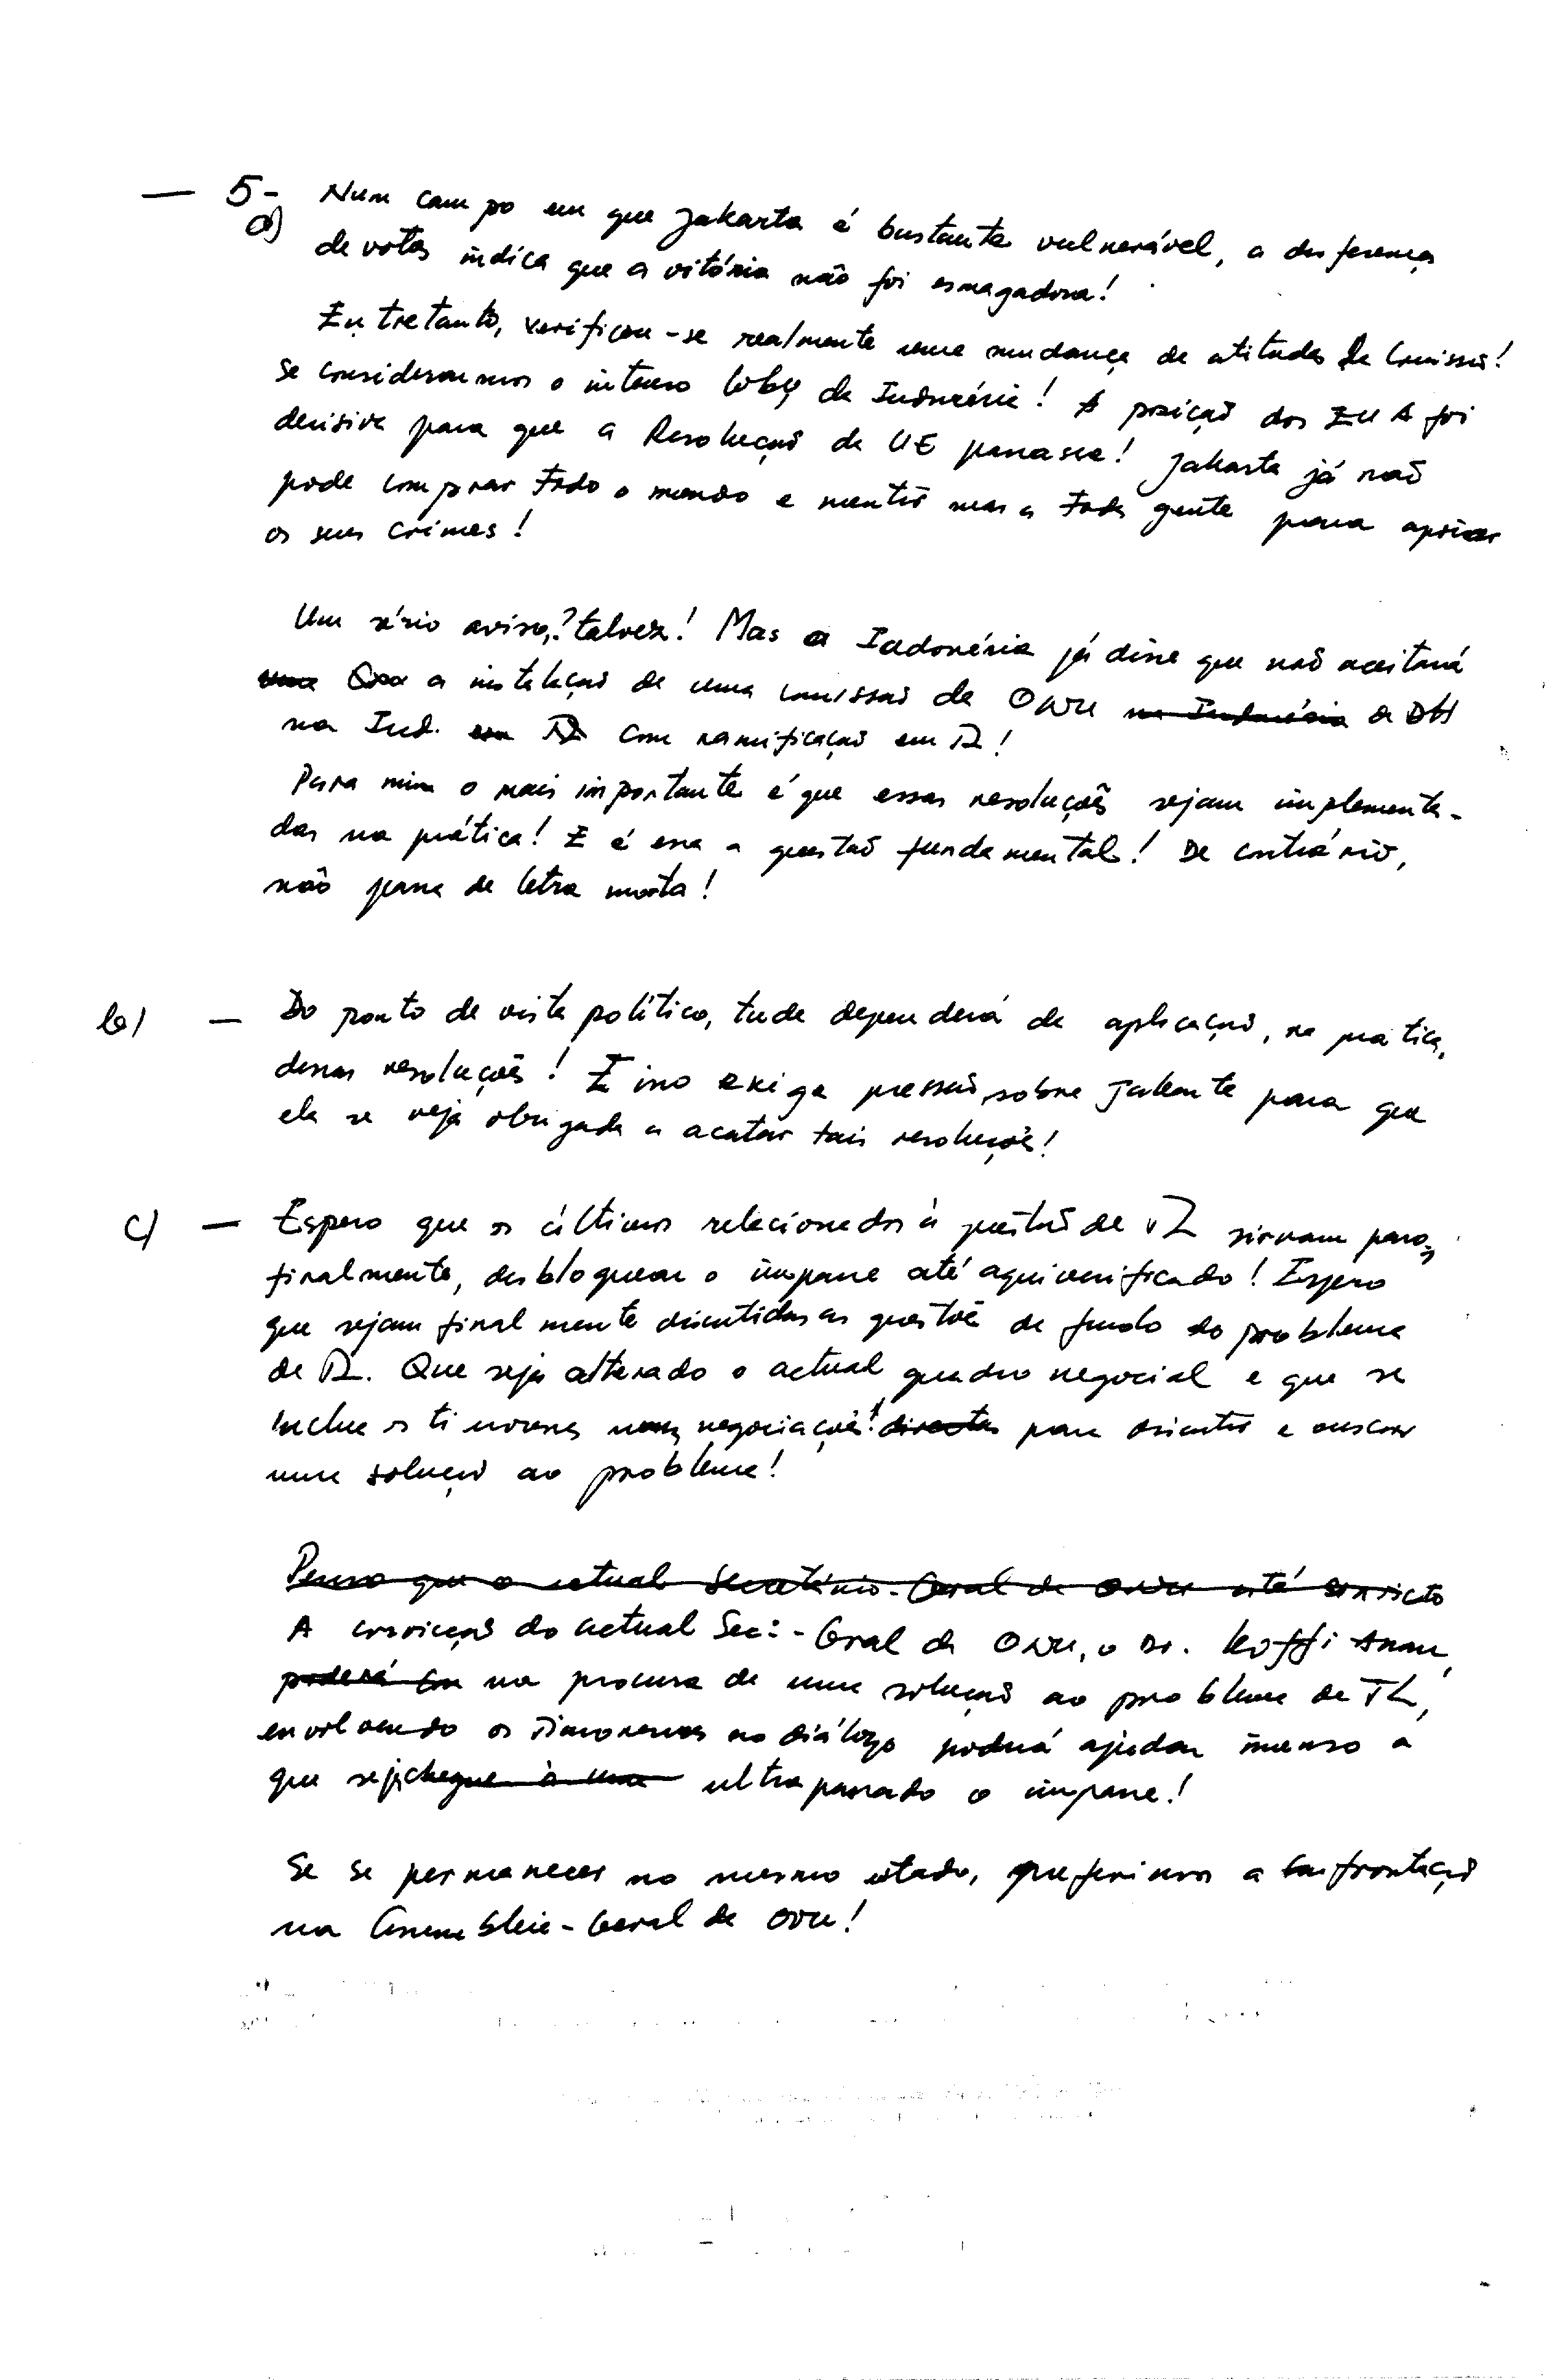 — 5- Num campo em que Jakarta é bastante vulnerável, a diferença
a) de votos indica que a vitória não foi esmagadora!
Entretanto, verificou-se realmente uma mudança de atitudes da Comissão!
Se considerarmos o intenso loby da Indonésia! A posição dos EUA foi
decisiva para que a Resolução da UE passasse! Jakarta já não
pode comprar todo o mundo e mentir mais a toda gente para apoiar
os seus crimes!
Um sério aviso,? talvez! Mas a Indonésia já disse que não aceitará
uma a instalação de uma comissão da ONU na Indonésia de DH
na Ind. em TL com ramificação em TL!
Para mim o mais importante é que essas resoluções sejam implementa-
das na prática! E é essa a questão fundamental! De contrário,
não passa de letra morta!
b) — Do ponto de vista político, tudo dependerá da aplicação, na prática,
dessas resoluções! E isso exige pressão sobre Jakarta para que
ela se veja obrigada a acatar tais resoluções!
c) — Espero que os últimos relacionados à questão de TL sirvam para,
finalmente, desbloquear o impasse até aqui verificado! Espero
que sejam finalmente discutidas as questões de fundo do problema
de TL. Que seja alterado o actual quadro negocial e que se
inclua os timorenses nas negociações! directas para discutir e buscar
uma solução ao problema!
Penso que o actual Secretário-Geral da ONU está convicto
A convicção do actual Sec:-Geral da ONU, o Dr. Koffi Anan,
poderá na procura de uma solução ao problema de TL,
envolvendo os Timorenses no diálogo poderá ajudar imenso a
que seja chegue à uma ultrapassado o impasse!
Se se permanecer no mesmo estado, preferimos a confrontação
na Assembleia-Geral da ONU!